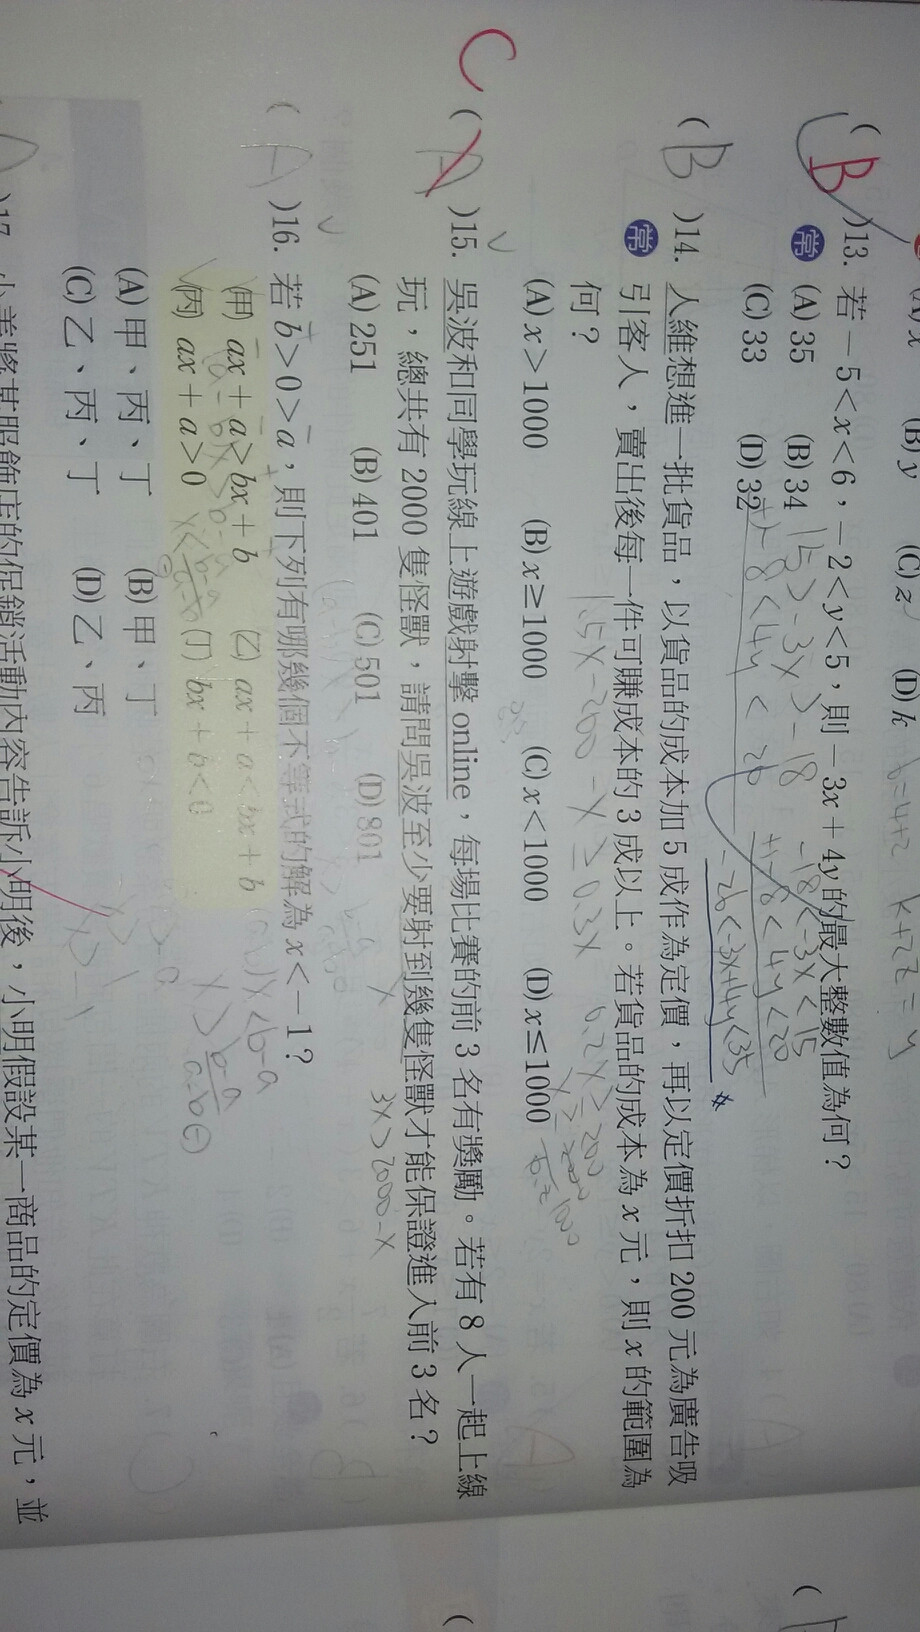 (A) x (B) y (C) z (D) k
k+2z=y
(B)13. 若-5<x<6，-2<y<5，則-3x+4y的最大整數值為何？
常 (A) 35 (B) 34
(C) 33 (D) 32
15>-3x>-18
-18<-3x<15
+)-8<4y<20
-26<-3x+4y<35
(B)14. 人維想進一批貨品，以貨品的成本加5成作為定價，再以定價折扣200元為廣告吸
常 引客人，賣出後每一件可賺成本的3成以上。若貨品的成本為x元，則x的範圍為
何？
1.5x-200-x≥0.3x
0.2x≥200
(A) x>1000 (B) x≥1000 (C) x<1000 (D) x≤1000
C
(A)15. 吳波和同學玩線上遊戲射擊online，每場比賽的前3名有獎勵。若有8人一起上線
玩，總共有2000隻怪獸，請問吳波至少要射到幾隻怪獸才能保證進入前3名？
(A) 251 (B) 401 (C) 501 (D) 801
3x>2000-x
(A)16. 若b>0>a，則下列有哪幾個不等式的解為x<-1？
(甲) ax+a>bx+b (乙) ax+a<bx+b
(丙) ax+a>0 (丁) bx+b<0
(A) 甲、丙、丁 (B) 甲、丁
(C) 乙、丙、丁 (D) 乙、丙
x>-1
)17. 小美將某服飾店的促銷活動內容告訴小明後，小明假設某一商品的定價為x元，並